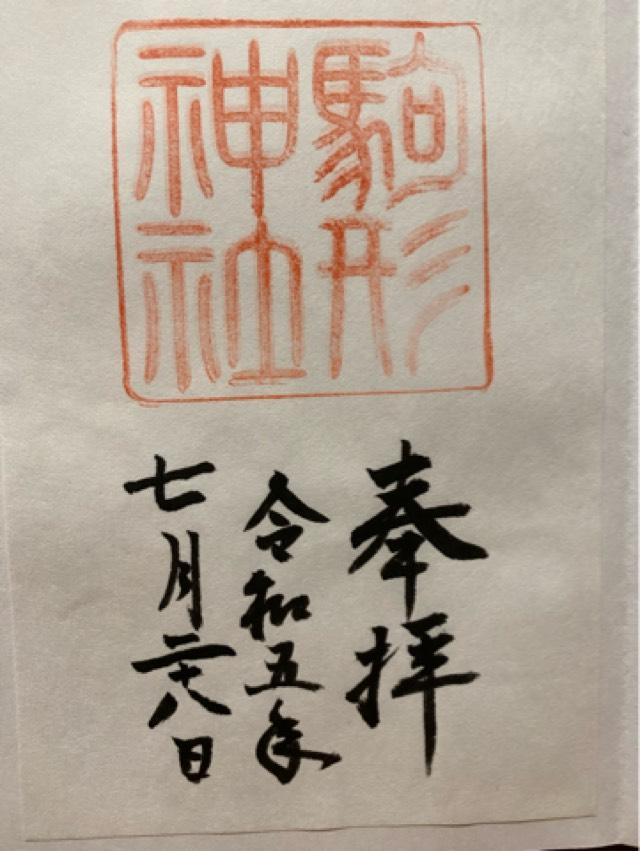 駒形
神社
奉拝
令和五年
七月二十八日